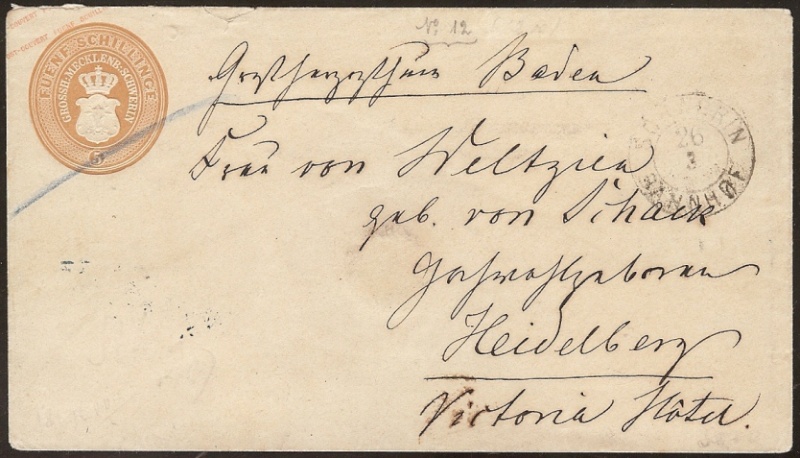 FUENF SCHILLINGE
GROSSH. MECKLENB. SCHWERIN
5
No. 12
Grossherzogthum Baden
Frau von Weltzien
geb. von Schack
Hochwohlgeboren
Heidelberg
Victoria Hôtel.
SCHWERIN
26
3
BAHNHOF